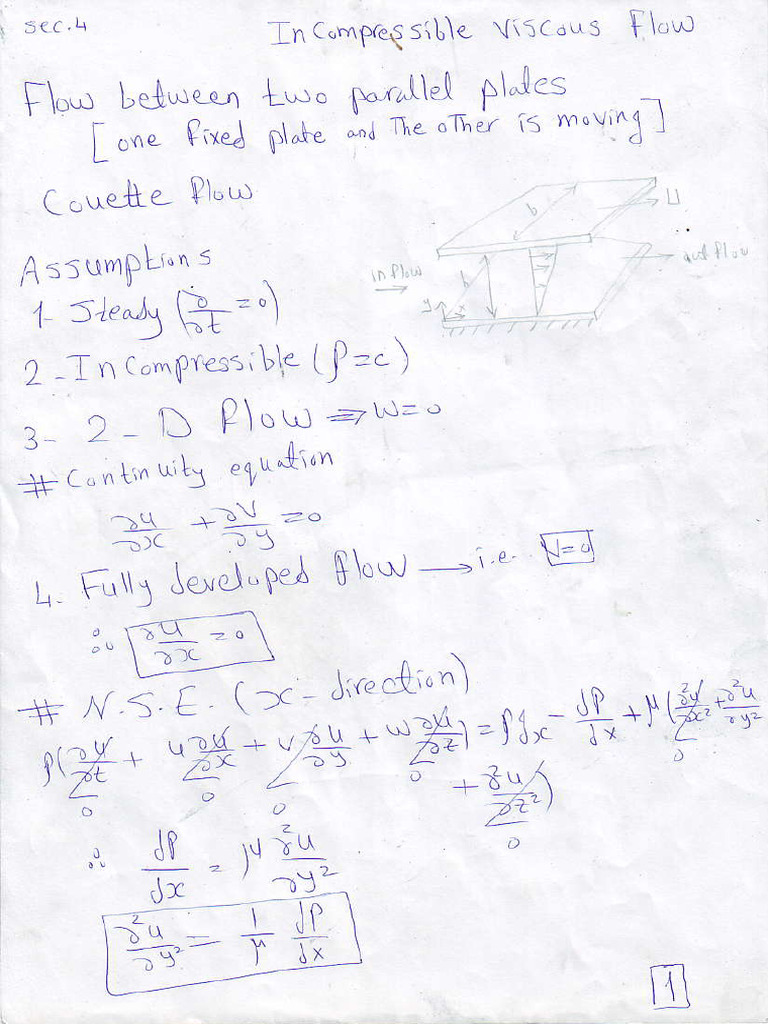 sec.4
InCompressible Viscous Flow
Flow between two parallel plates
[one fixed plate and The other is moving]
Couette flow
b
U
inflow
h
out flow
y
x
Assumptions
1- Steady (∂/∂t = 0)
2- InCompressible (ρ = c)
3- 2-D Flow ⇒ W=0
# Continuity equation
∂u/∂x + ∂V/∂y = 0
4. Fully developed flow → i.e. V=0
∴ ∂u/∂x = 0
# N.S.E. (x-direction)
ρ(∂u/∂t + u ∂u/∂x + v ∂u/∂y + w ∂u/∂z) = ρgx - dP/dx + μ(∂²u/∂x² + ∂²u/∂y²
0 0 0 0 0
+ ∂²u/∂z²)
0
∴ dP/dx = μ ∂²u/∂y²
∂²u/∂y² = 1/μ dP/dx
1